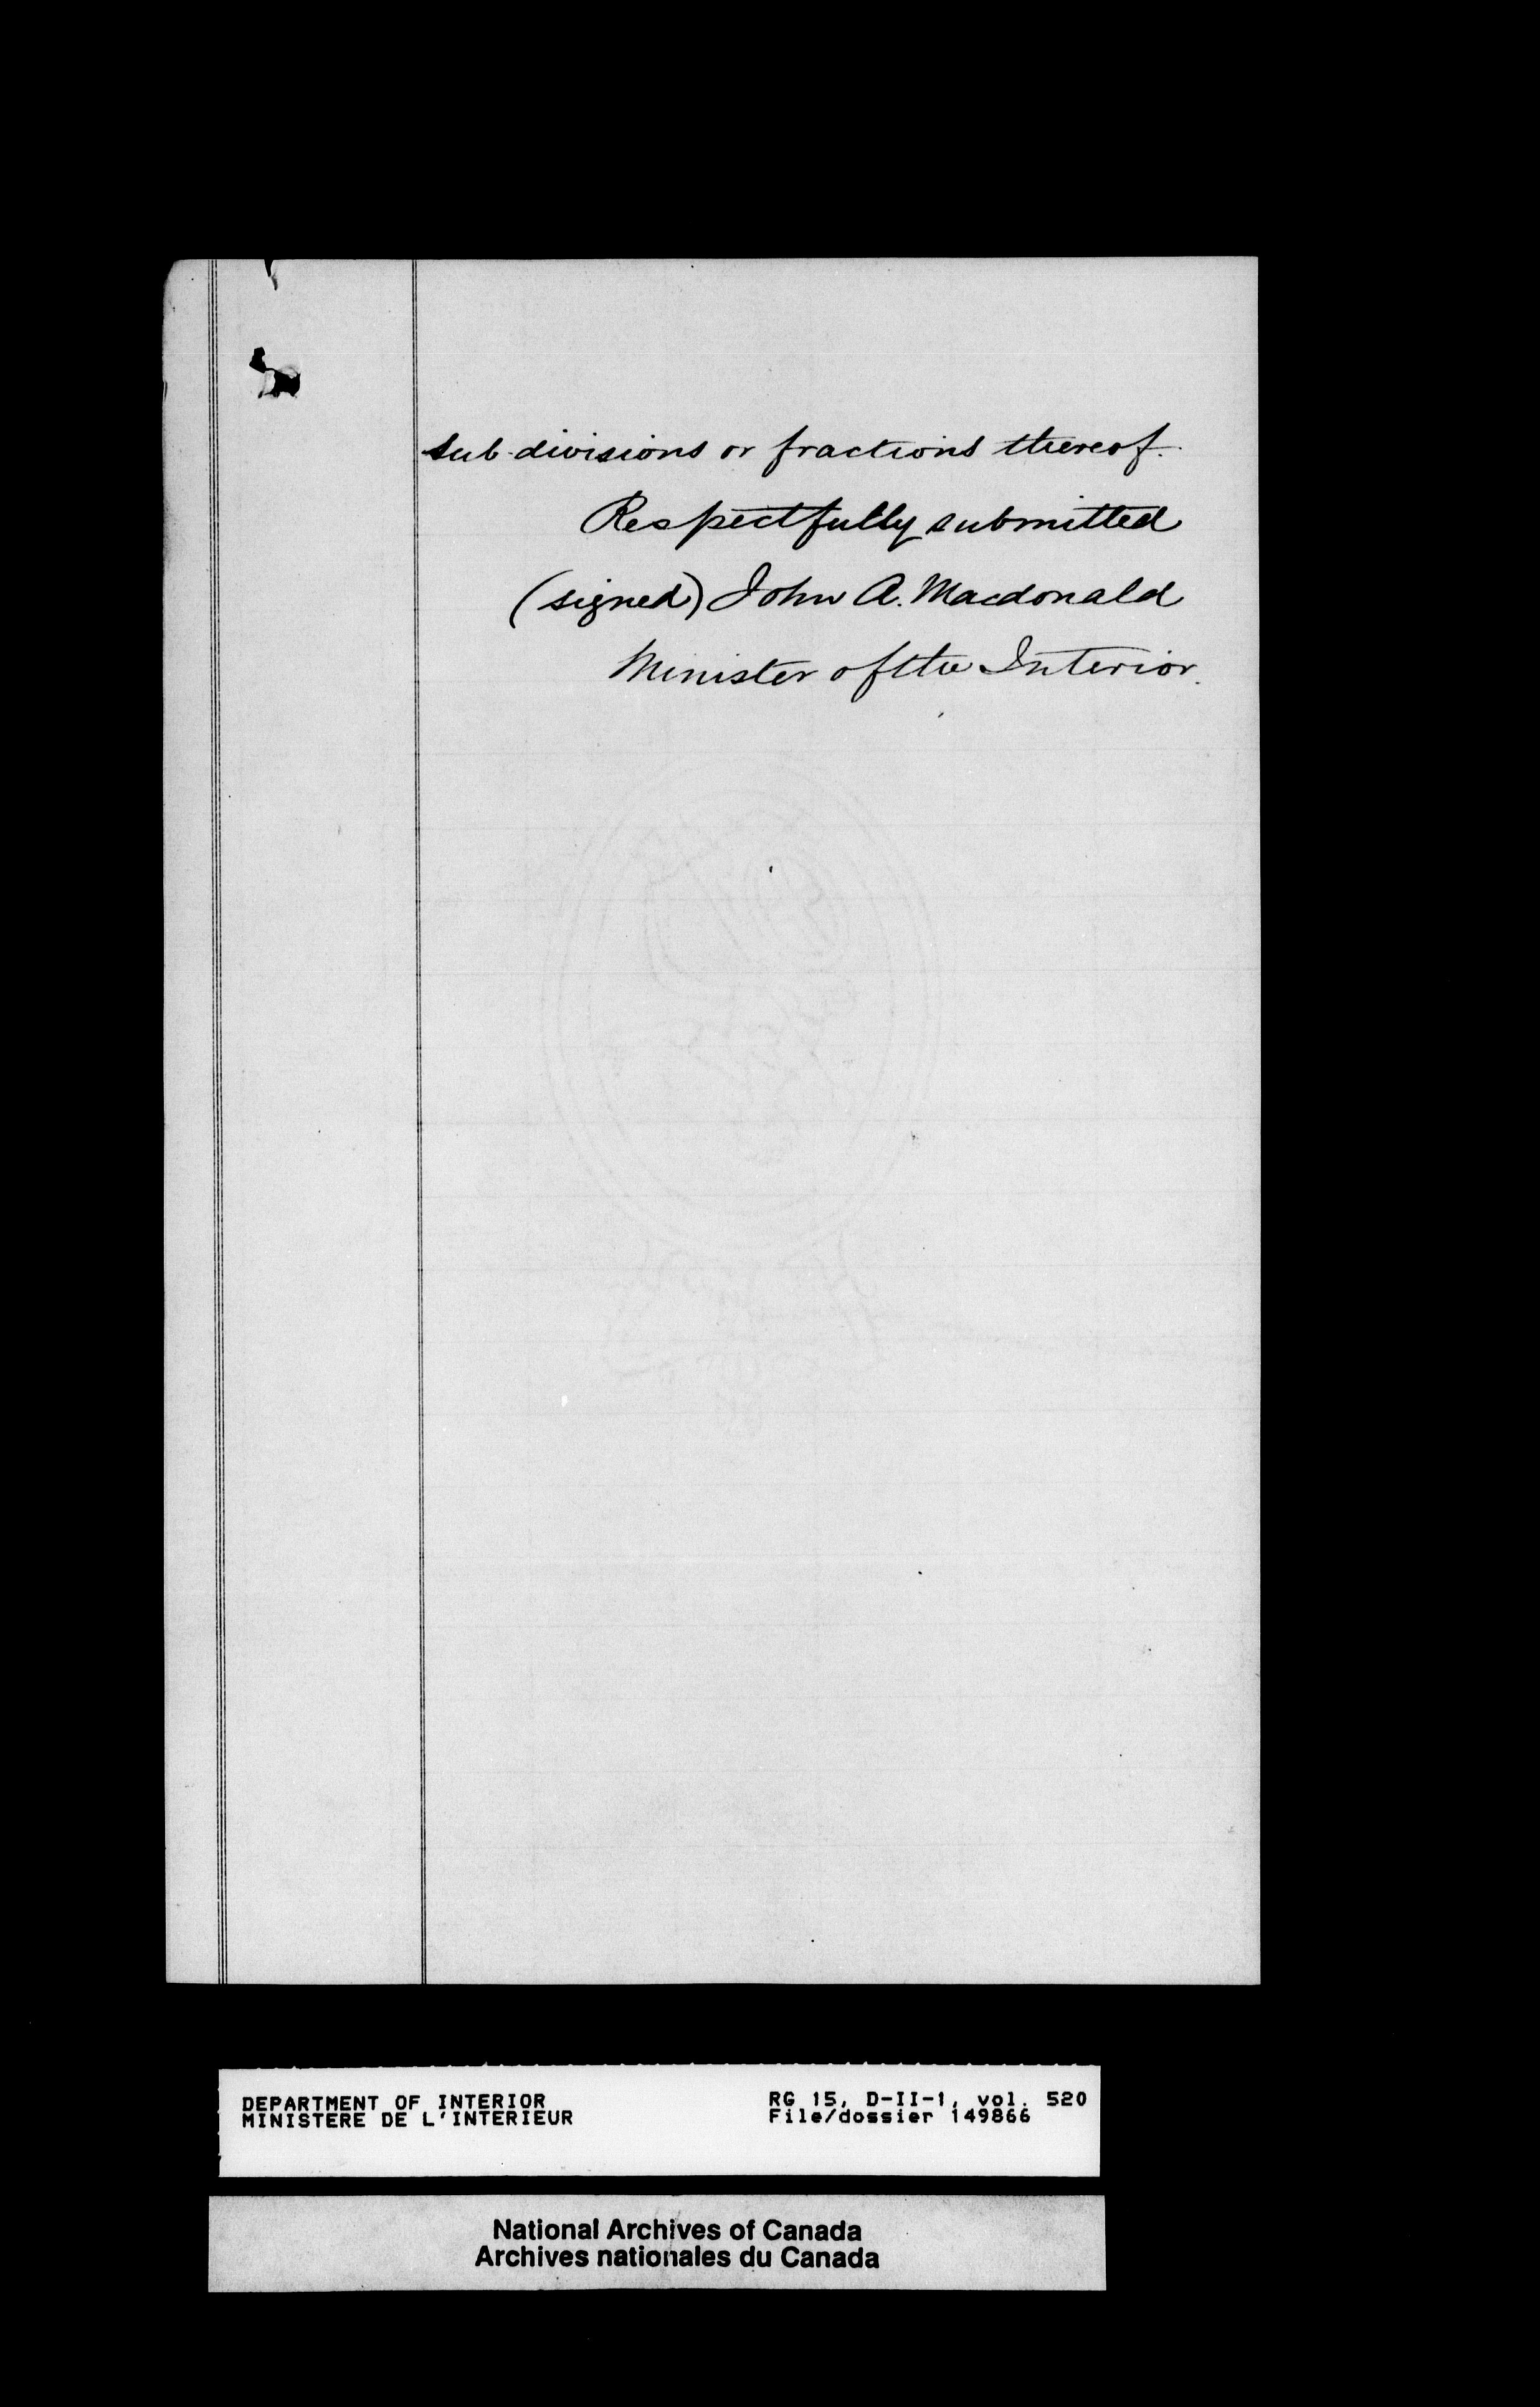 sub-divisions or fractions thereof.
Respectfully submitted
(signed) John A. Macdonald
Minister of the Interior.
DEPARTMENT OF INTERIOR
MINISTERE DE L'INTERIEUR
RG 15, D-II-1, vol. 520
File/dossier 149866
National Archives of Canada
Archives nationales du Canada